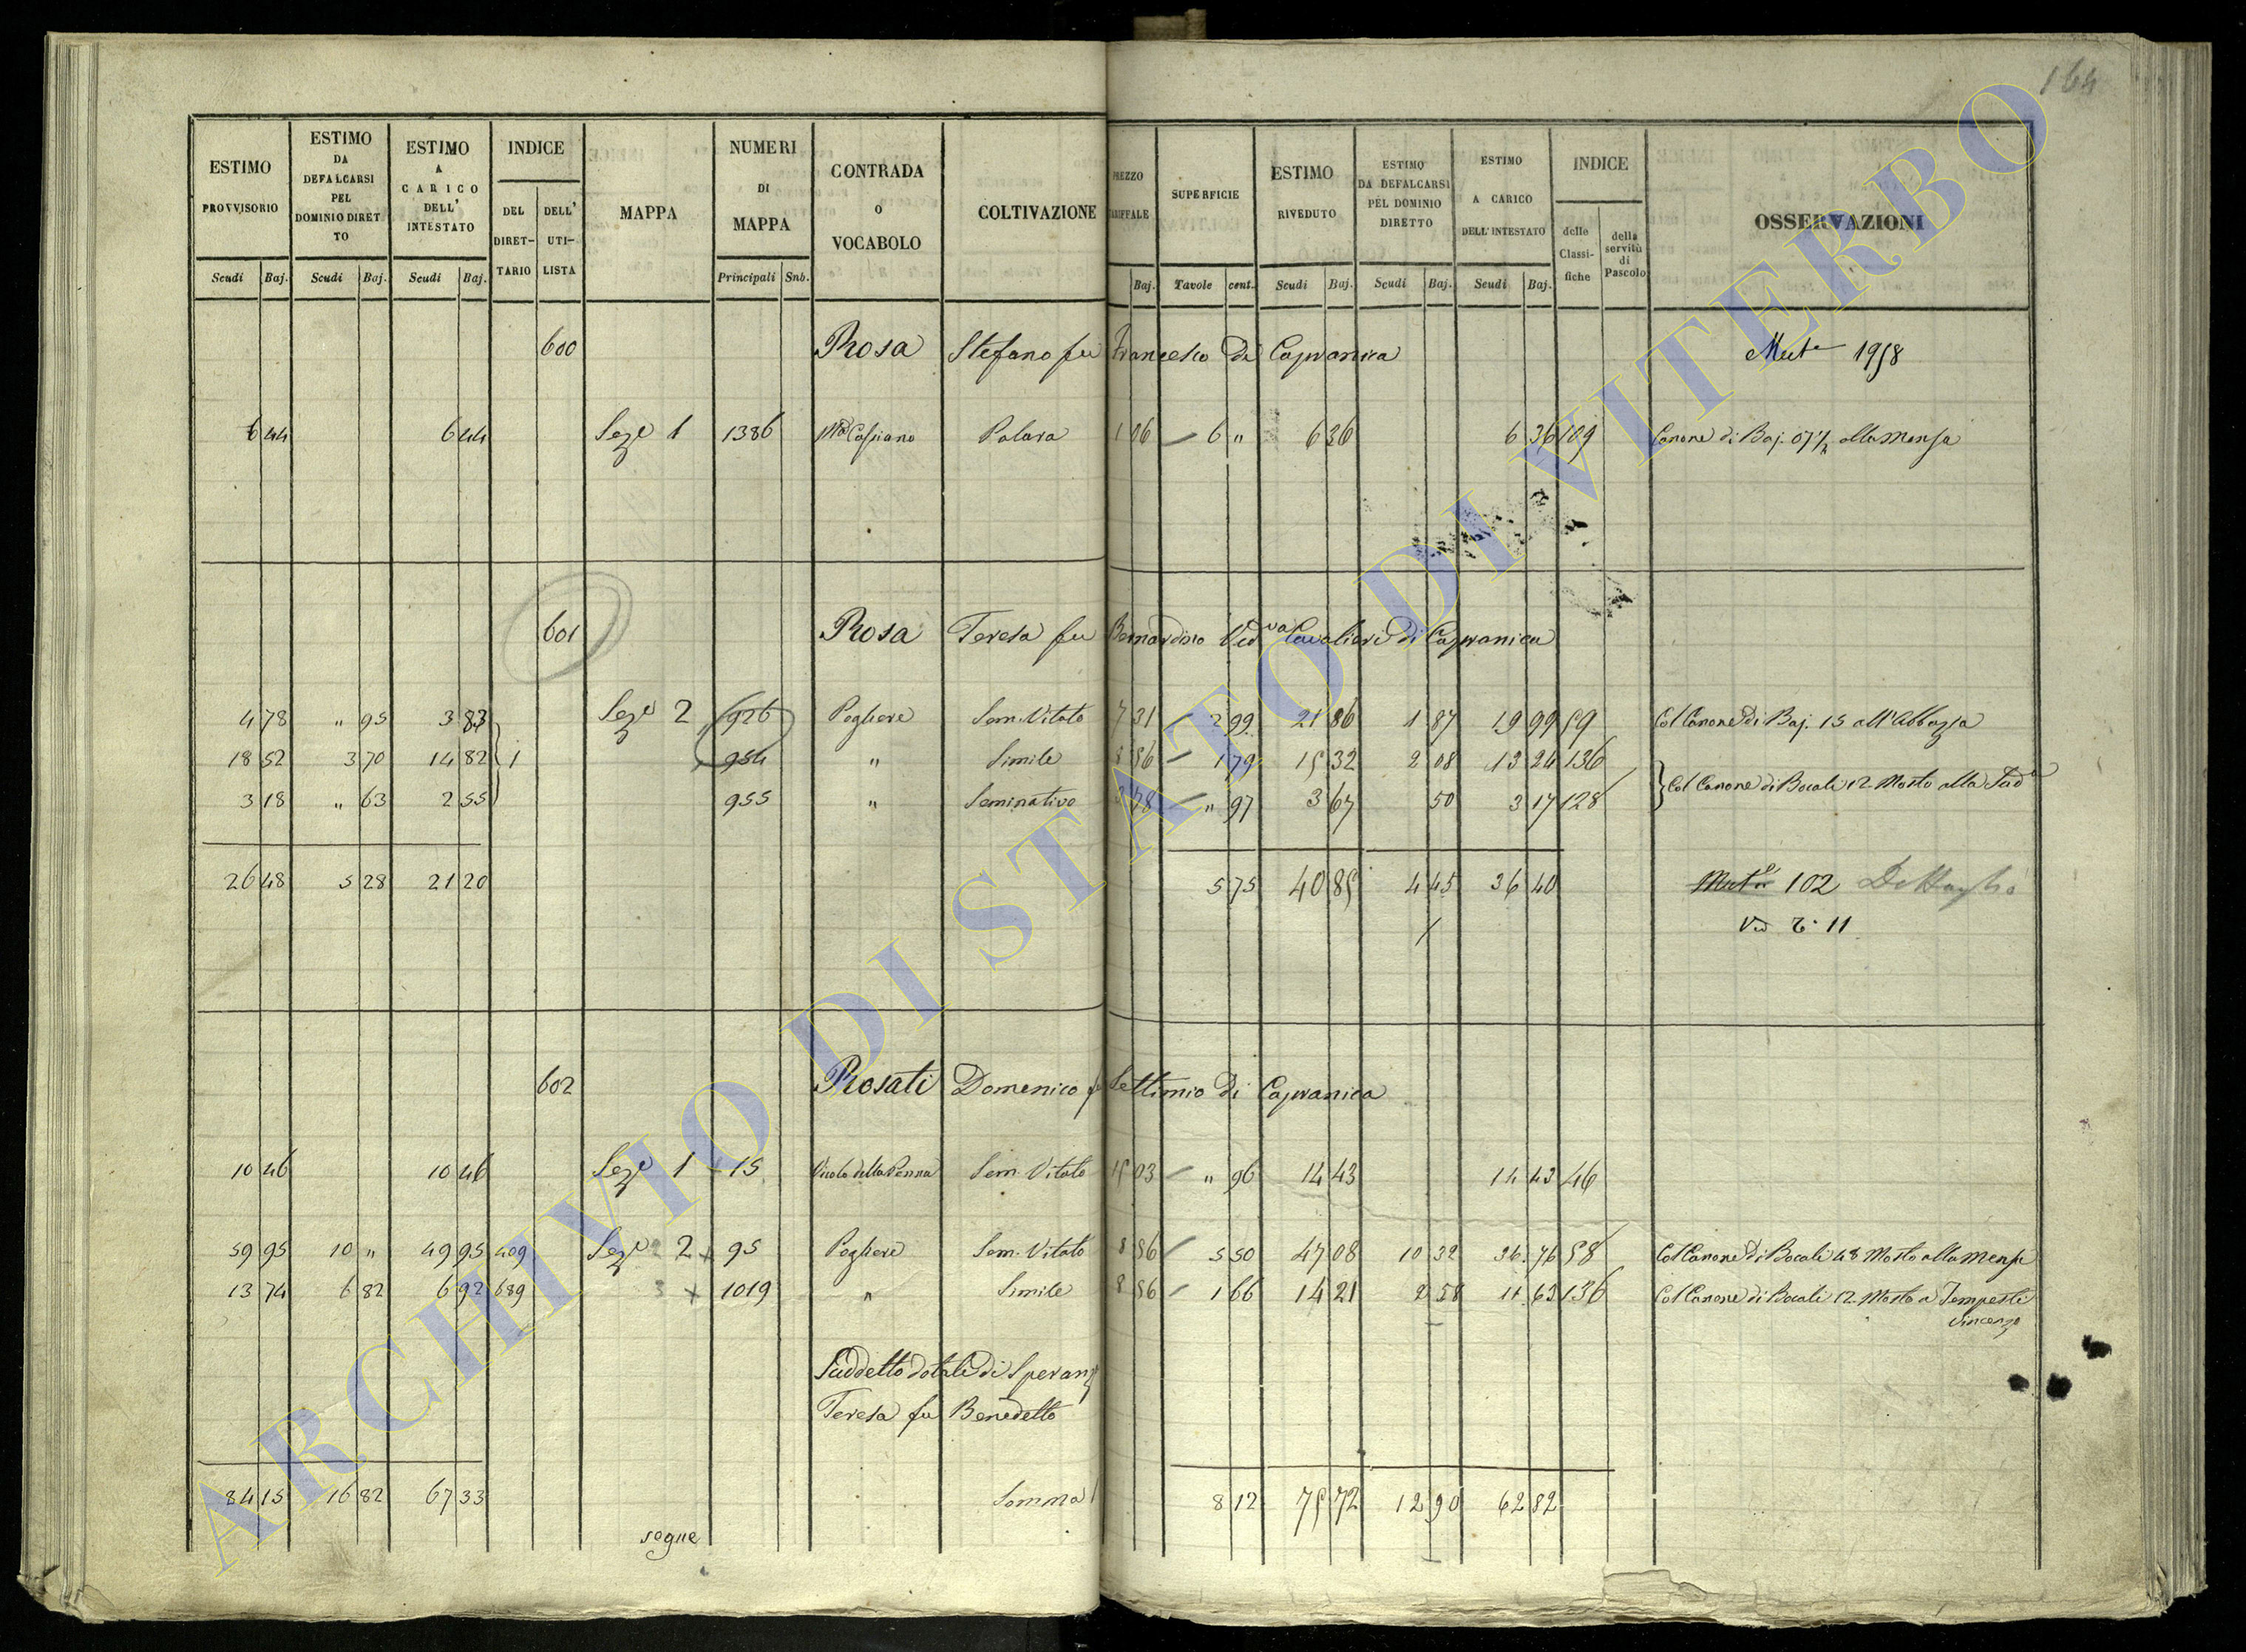 164
ESTIMO PROVVISORIO Scudi Baj.
ESTIMO DA DEFALCARSI PEL DOMINIO DIRETTO Scudi Baj.
ESTIMO A CARICO DELL' INTESTATO Scudi Baj.
INDICE DEL DIRETTARIO DELL' UTILISTA
MAPPA
NUMERI DI MAPPA Principali Snb.
CONTRADA O VOCABOLO
COLTIVAZIONE
PREZZO TARIFFALE Baj.
SUPERFICIE Tavole cent.
ESTIMO RIVEDUTO Scudi Baj.
ESTIMO DA DEFALCARSI PEL DOMINIO DIRETTO Scudi Baj.
ESTIMO A CARICO DELL' INTESTATO Scudi Baj.
INDICE delle Classifiche della servitù di Pascolo
OSSERVAZIONI
600 Rosa Stefano fu Francesco di Capranica
6 44 6 44 Seze 1 1386 Palara 1 06 6 " 6 36 6 36 109 Canone di Baj. 07½ alla Mensa
601 Rosa Teresa fu Bernardino Vedva Cavalieri di Capranica
4 78 " 95 3 83 Seze 2 926 Pogliere Sem. Vitato 7 31 2 99 21 86 1 87 19 99 59 Col Canone di Baj. 15 all'Abbazia
18 52 3 70 14 82 1 954 " Simile 8 56 1 79 15 32 2 08 13 24 136 Col Canone di Bocali 12 Mosto alla Suda
3 18 " 63 2 55 955 " Seminativo 3 78 " 97 3 67 50 3 17 128
26 48 5 28 21 20 5 75 40 85 4 45 36 40 102 Dettaglio
11
602 Rosati Domenico fu Settimio di Capranica
10 46 10 46 Seze 1 15 Vicolo della Penna Sem. Vitato 15 03 " 96 14 43 14 43 46
59 95 10 " 49 95 409 Seze 2 95 Pogliere Sem. Vitato 8 56 5 50 47 08 10 32 36 76 58 Col Canone di Bocali 48 Mosto alla Mensa
13 74 6 82 6 92 689 1019 " Simile 8 56 1 66 14 21 2 58 11 63 136 Col Canone di Bocali 12 Mosto a Tempesti
Vincenzo
Suddetto dotali di Speranz
Teresa fu Benedetto
84 15 16 82 67 33 Somma 8 12 75 72 12 90 62 82
segue
ARCHIVIO DI STATO DI VITERBO